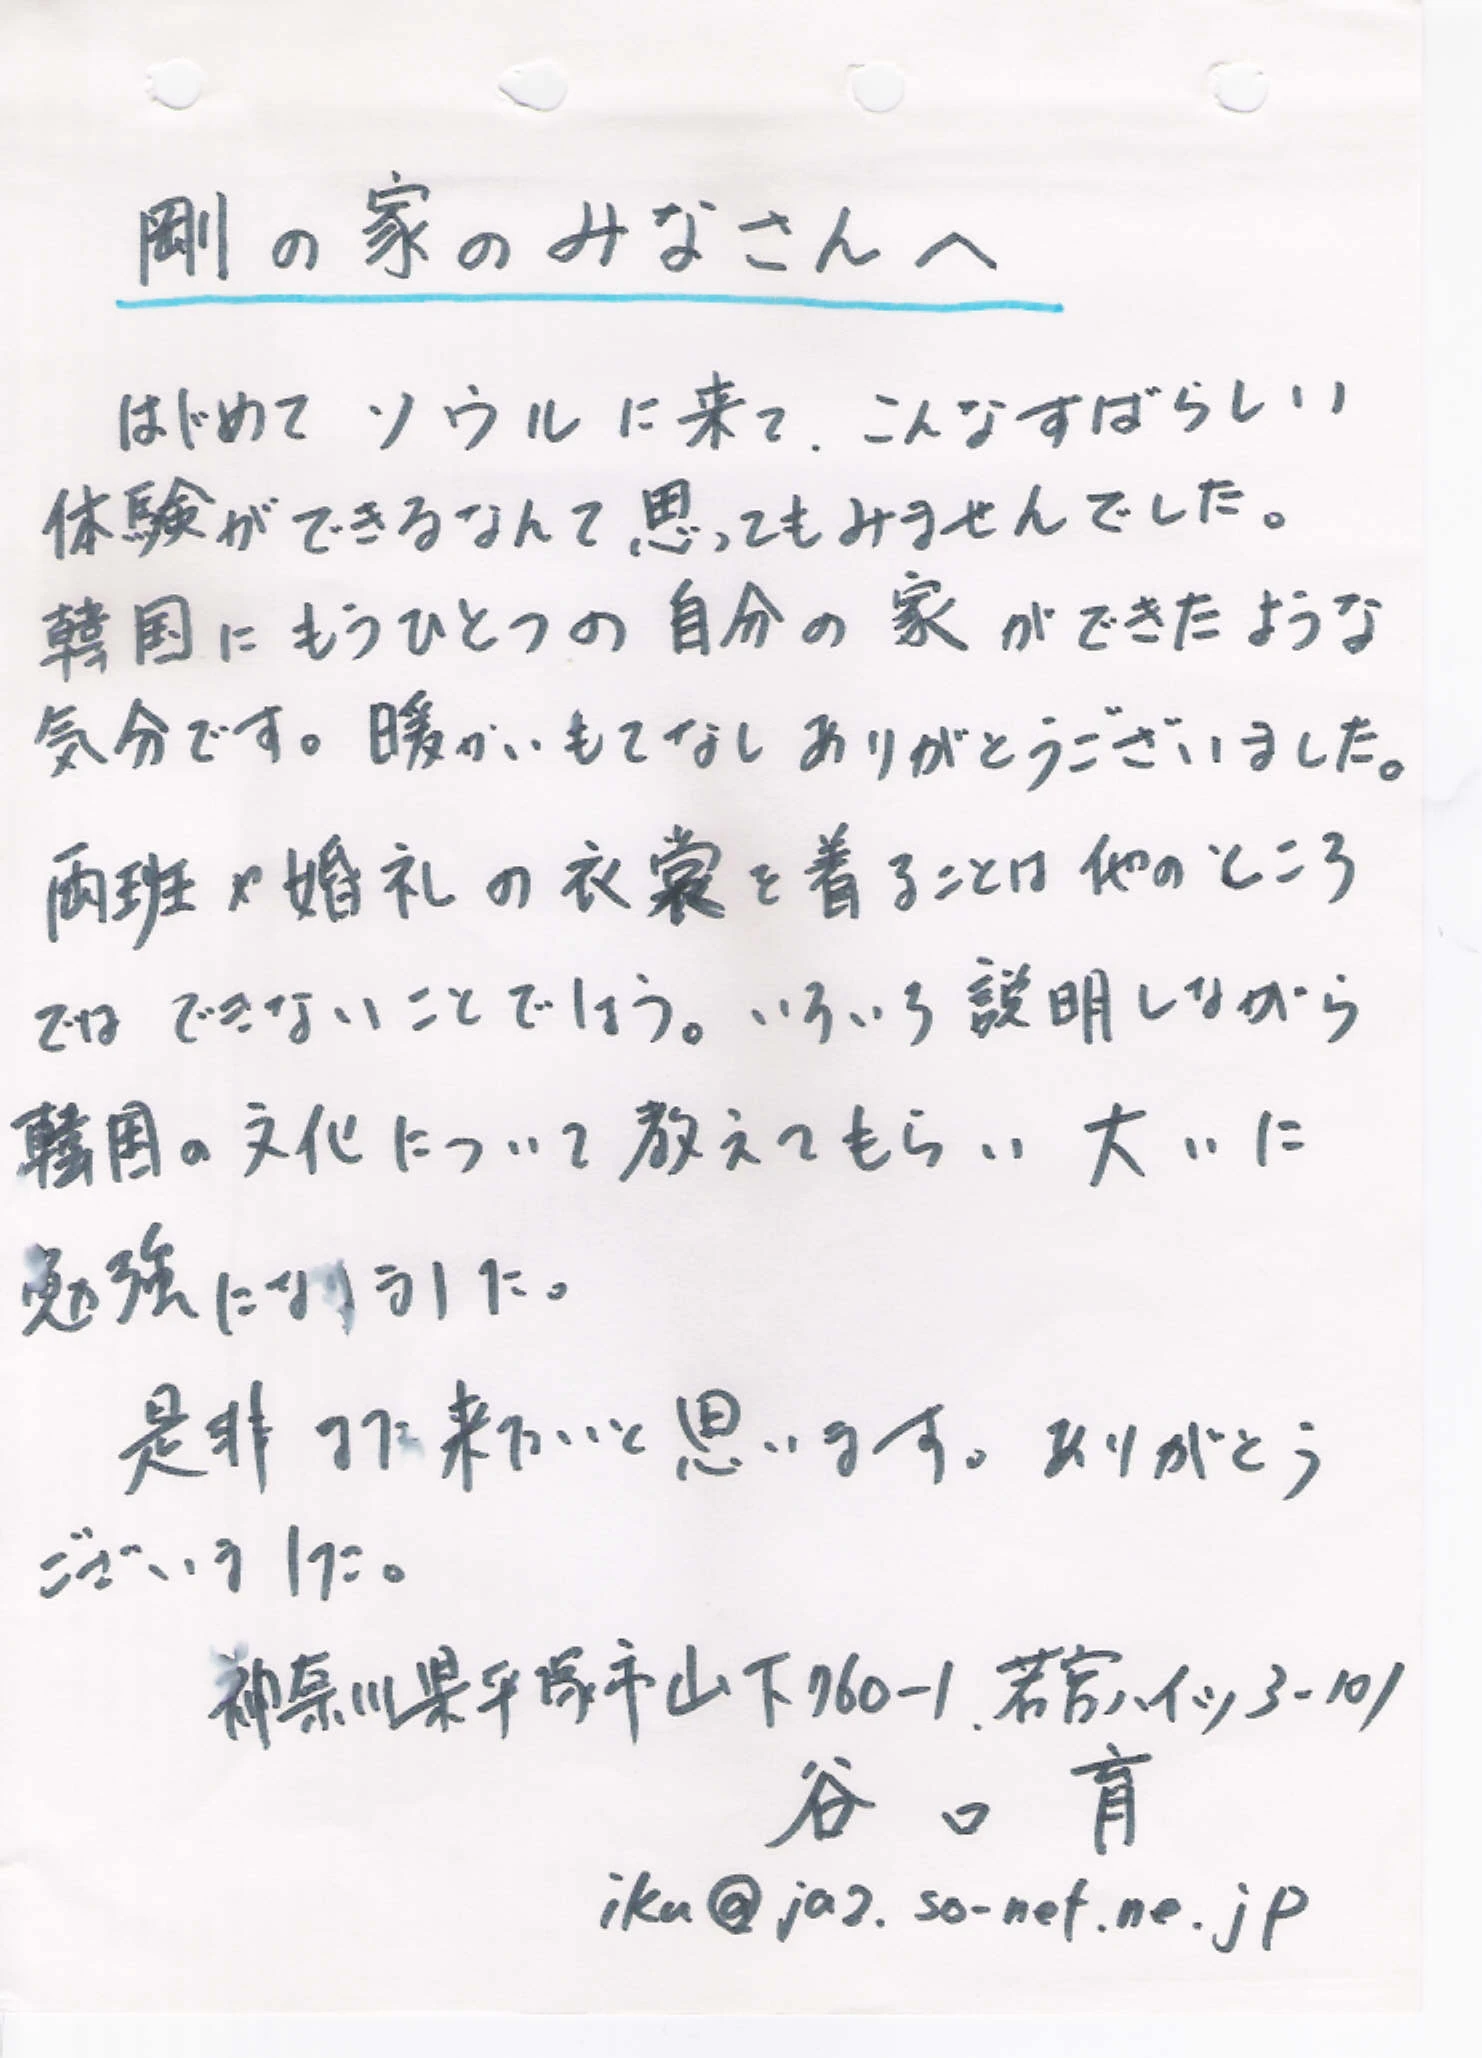 剛の家のみなさんへ
はじめてソウルに来て、こんなすばらしい
体験ができるなんて思ってもみませんでした。
韓国にもうひとつの自分の家ができたような
気分です。暖かいもてなしありがとうございました。
両班や婚礼の衣裳を着ることは他のところ
ではできないことでしょう。いろいろ説明しながら
韓国の文化について教えてもらい大いに
勉強になりました。
是非また来たいと思います。ありがとう
ございました。
神奈川県平塚市山下760-1、若宮ハイツ3-101
谷口育
iku@ja2.so-net.ne.jp